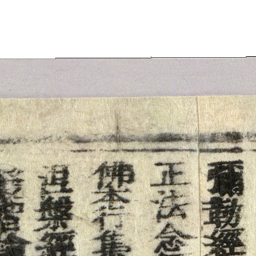 彌勒經
正法念
佛本行集
涅槃經